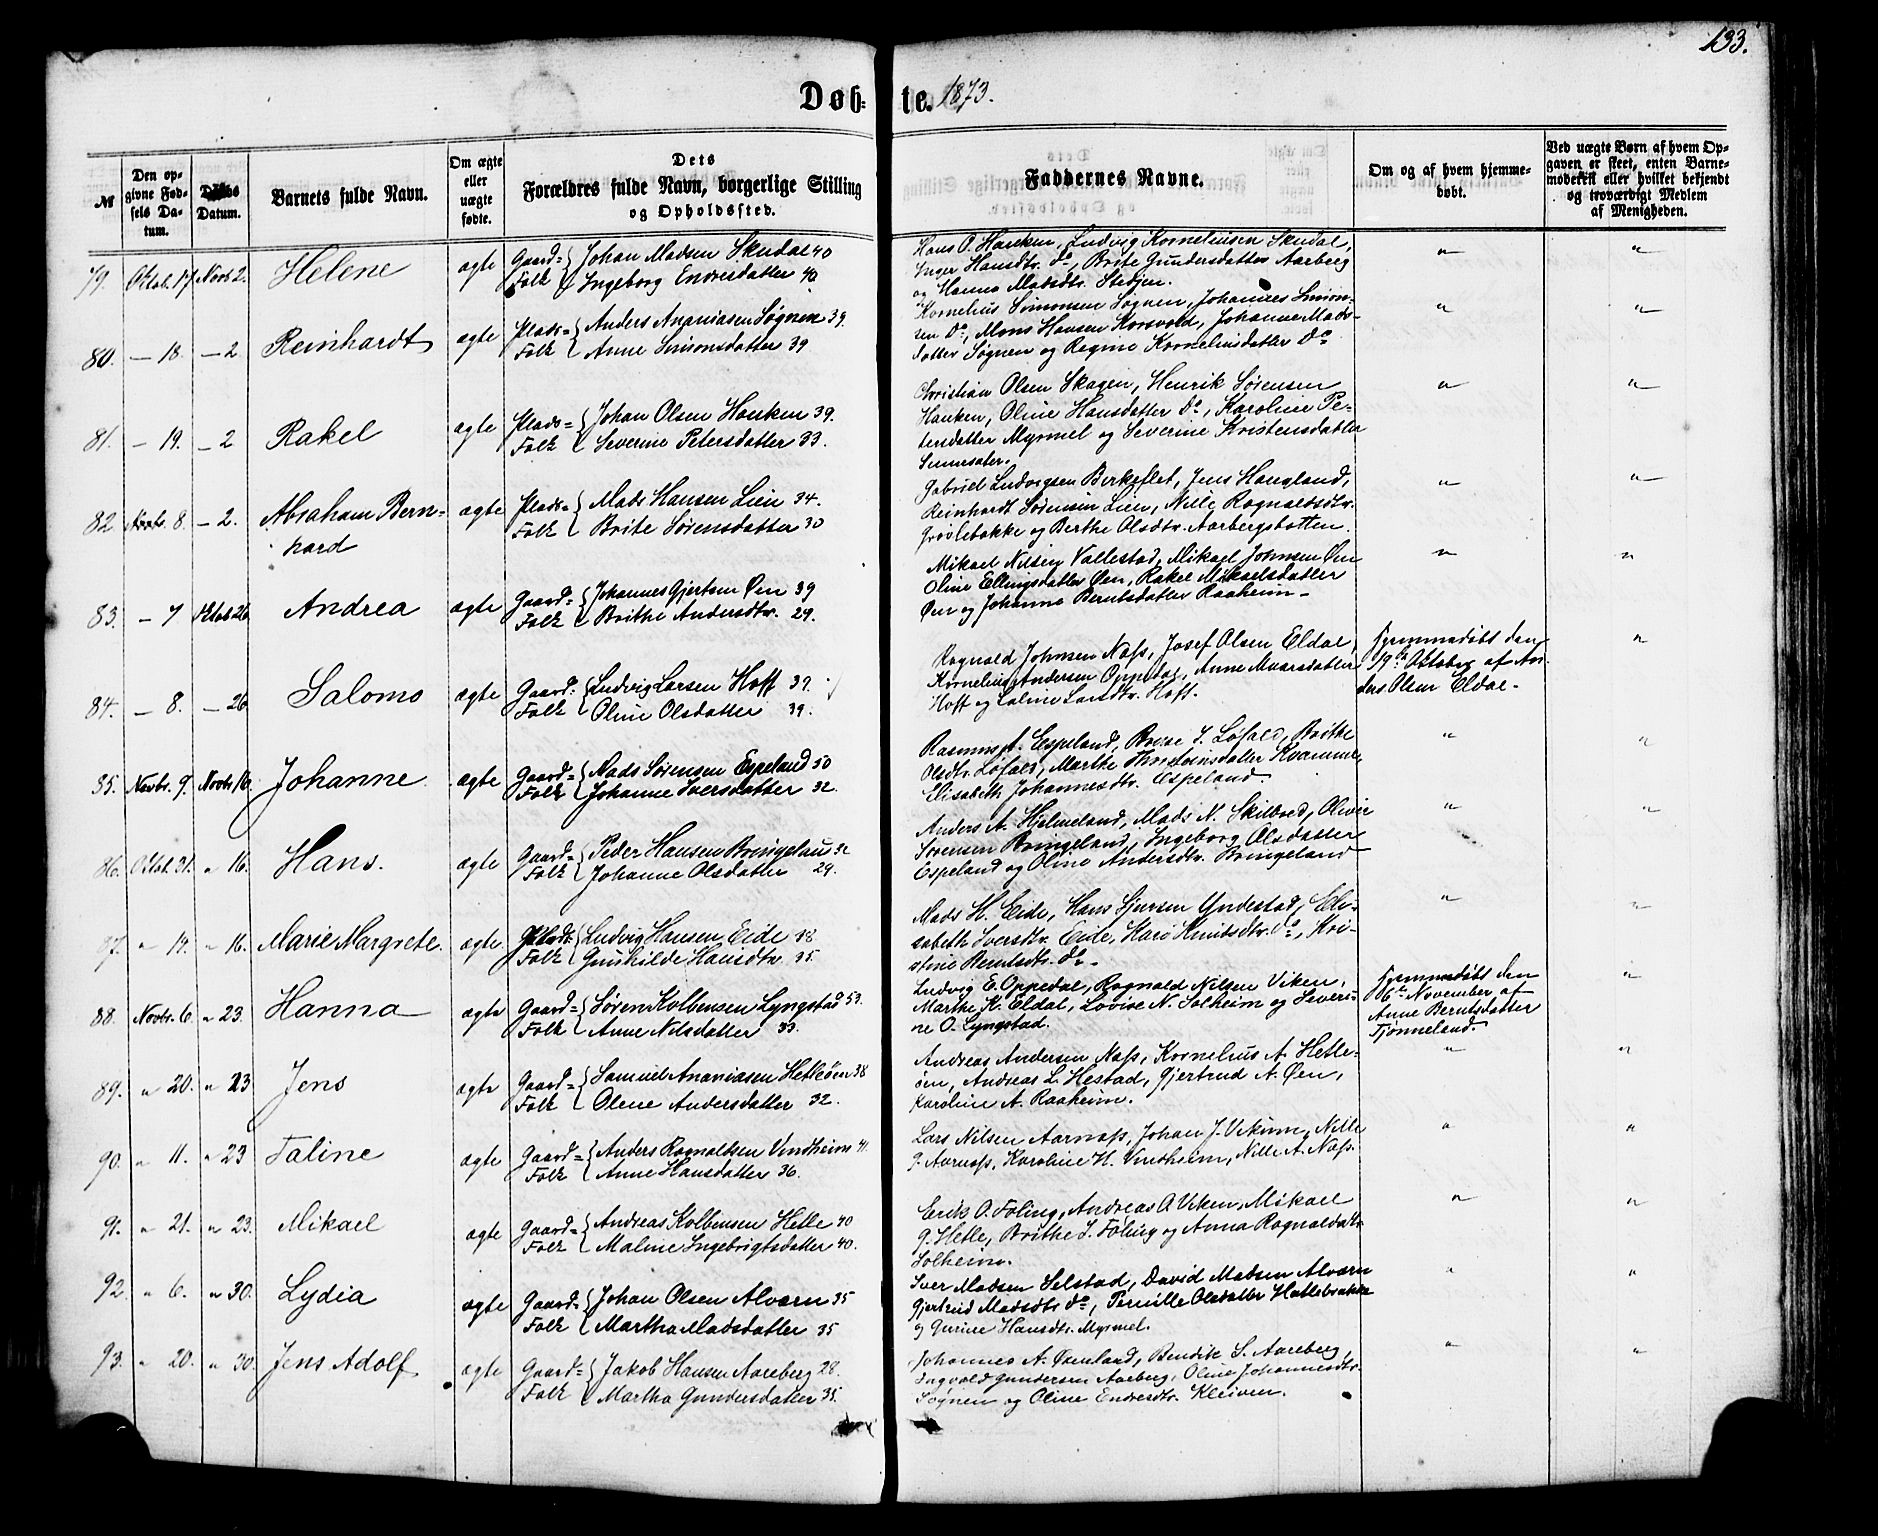 133.
Døb- te. 1873.
№
Den opgivne Fødsels Datum.
Døbs Datum.
Barnets fulde Navn.
Om ægte eller uægte fødte.
Dets Forældres fulde Navn, borgerlige Stilling og Opholdssted.
Faddernes Navne.
Om og af hvem hjemmedøbt.
Ved uægte Børn af hvem Opgaven er skeet, enten Barnemoderen eller hvilket bekjendt og troværdigt Medlem af Menigheden.
79. Oktob. 17 Novb 2. Helene ægte Gaard= Folk Johan Madsen Skudal 40
Ingeborg Endresdatter 40
Hans O. Hauken, Ludvig Kornelinsen Skudal,
Inger Hansdtr. do, Brite Gundersdatter Aarberg
og Hanna Madsdtr. Stedjen. " "
80. — 18. — 2 Reinhardt ægte Plads= Folk Anders Ananiasen Søgnen 39.
Anne Simonsdatter 39
Kornelius Simonsen Søgnen, Johannes Simon-
sen Do, Mons Hansen Korsvold, Johanne Mads-
datter Søgnen og Regine Kornelinsdatter Do " "
81. — 19. — 2 Rakel ægte Plads= Folk Johan Olsen Hauken 39.
Severine Petersdatter 33.
Christian Olsen Skagen, Henrik Sørensen
Hauken, Oline Hansdatter Do, Karoline Pe-
tersdatter Myrmel og Severine Kristensdatter
" "
82 Novbr. 8. — 2. Abraham Bern-
hard ægte Plads= Folk Mads Hansen Lien 34.
Brite Sørensdatter 30
Gabriel Ludvigsen Birkeflet, Jens Haugland,
Reinhardt Sørensen Lien, Nille Rognaldsdtr.
og Berthe Olsdtr. Aarbergsbotten. " "
83. — 7 Oktob 26 Andrea ægte Gaard= Folk Johannes Gjertsen Øen 39
Brithe Andersdtr. 29.
Mikael Nilsen Vallestad, Mikael Johnsen Øen
Oline Ellingsdatter Øen, Rakel Mikaelsdatter
Øen og Johanna Berntsdatter Raaheim — " "
84. — 8. — 26 Salomo ægte Gaard= Folk Ludvig Larsen Hoff 39.
Oline Olsdatter 39.
Rognald Johnsen Næss, Josef Olsen Eldal,
Kornelius Andersen Oppedal, Anne
Hoff og Larsdtr. Hoff.
Hjemmedøbt den
19de Oktober af An-
ders Olsen Eldal. "
85. Novbr. 9. Novbr 16. Johanne ægte Gaard= Folk Mads Sørensen Espeland 50
Johanne Iversdatter 32.
Rasmus A. Espeland, J. Løfald, Brithe
Olsdtr. Løfald, Marthe Thorsteinsdatter Kvamme,
Elisabeth Johannesdtr. Espeland. " "
86. Oktob. 31. " 16. Hans. ægte Gaard= Folk Peder Hansen Bringelan 32
Johanne Olsdatter 29.
Anders A. Hjelmeland, Mads N. Skilbred, Oliver
Sørensen Bringeland, Ingeborg Olsdatter
Espeland og Oline Andersdtr. Bringeland " "
87. " 14. " 16. Marie Margrete. ægte Folk Ludvig Hansen Eide 38
Gunhilde Hansdtr 35.
Mads H. Eide, Hans Sjursen Yndestad, Eli-
sabeth Iversdtr. Eide, Kari Knutsdtr. do, Kri-
stine Berntsdtr. do. " "
88. Novbr. 6. " 23. Hanna ægte Gaard= Folk Søren Kolbensen Lyngstad 53.
Anne Nilsdatter 33.
Ludvig E. Oppedal, Rognald Nilsen Viken,
Marthe K. Eldal, Lovise N. Solheim og Severi-
ne O. Lyngstad.
Hjemmedøbt den
6te November af
Anne Berntsdatter
Tjønneland. "
89. " 20. " 23 Jens ægte Gaard= Folk Samuel Ananiasen Hetleøen 38
Olene Andersdatter 32.
Andreas Andersen Næss, Kornelius A. Hetle-
øen, Andreas L. Hestad, Gjertrud A. Øen,
Karoline A. Raaheim. " "
90. " 11. " 23 Taline ægte Gaard= Folk Anders Rognaldsen Vindheim 41.
Anne Hansdatter 36.
Lars Nilsen Aarnæss, Johan J. Vikum, Nille
G. Aarnæss, Karoline H. Vindheim, Nille A. Næss. " "
91. " 21. " 23. Mikael ægte Gaard= Folk Andreas Kolbensen Hetle 40
Maline Ingebrigtsdatter 40.
Erik O. Føling, Andreas A Viken, Mikael
G. Hetle, Brithe I. Føling og Anna Rognaldsdtr
Solheim. " "
92. " 6. " 30. Lydia ægte Gaard= Folk Johan Olsen Alværn 35
Martha Madsdatter 35
Iver Madsen Selstad, David Madsen Alværn
Gjertrud Madsdtr do, Pernille Olsdatter Hatlebrække
og Gurine Hansdtr. Myrmel. " "
93. " 20. " 30. Jens Adolf ægte Gaard= Folk Jakob Hansen Aareberg 28.
Martha Gundersdatter 35.
Johannes A. Øxenland, Bendik S. Aareberg,
Ingvald Gundersen Aarberg, Oline Johannesdtr.
Søgnen og Oline Endresdtr. Kleiven. " "